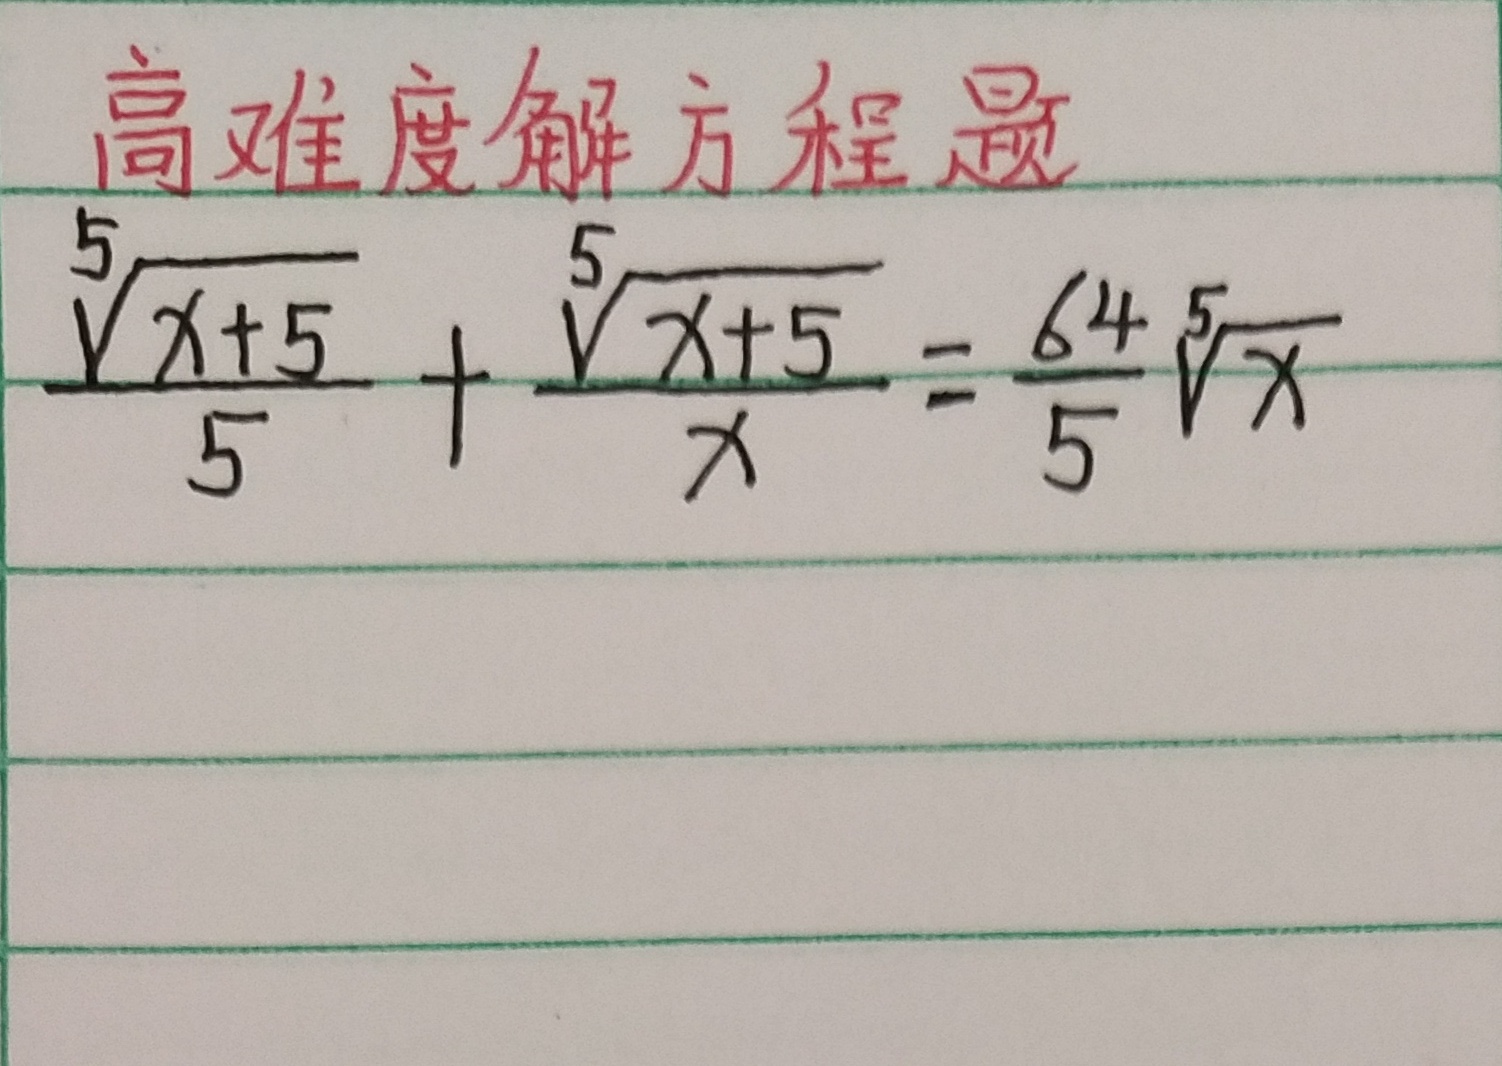 高难度解方程题
\frac{\sqrt[5]{x+5}}{5} + \frac{\sqrt[5]{x+5}}{x} = \frac{64}{5} \sqrt[5]{x}